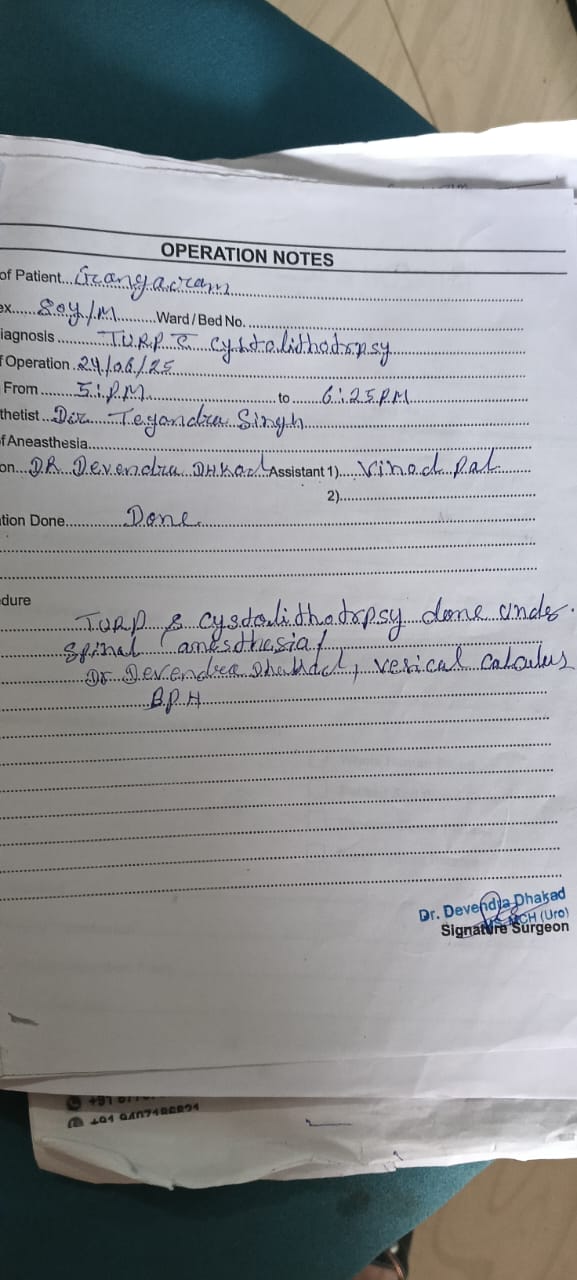 OPERATION NOTES
of Patient... Gangaram
ex..... 80y/M ........ Ward / Bed No.
iagnosis ........ TURP & Cystolithotopsy
f Operation . 24/06/25
From ...... 5:PM ........ to ...... 6:25PM
thetist ... Dr. Tegandra Singh
f Aneasthesia
on... DR. Devendra DHkad Assistant 1).... Vinod Pal
2)
tion Done.......... Done
dure
TURP & Cystolithotopsy done under
Spinal anesthesia /
Dr. Devendra Dhakad, vesical calculus
B.P.H
Dr. Devendra Dhakad
MS MCH (Uro)
Signature Surgeon
+91
+91